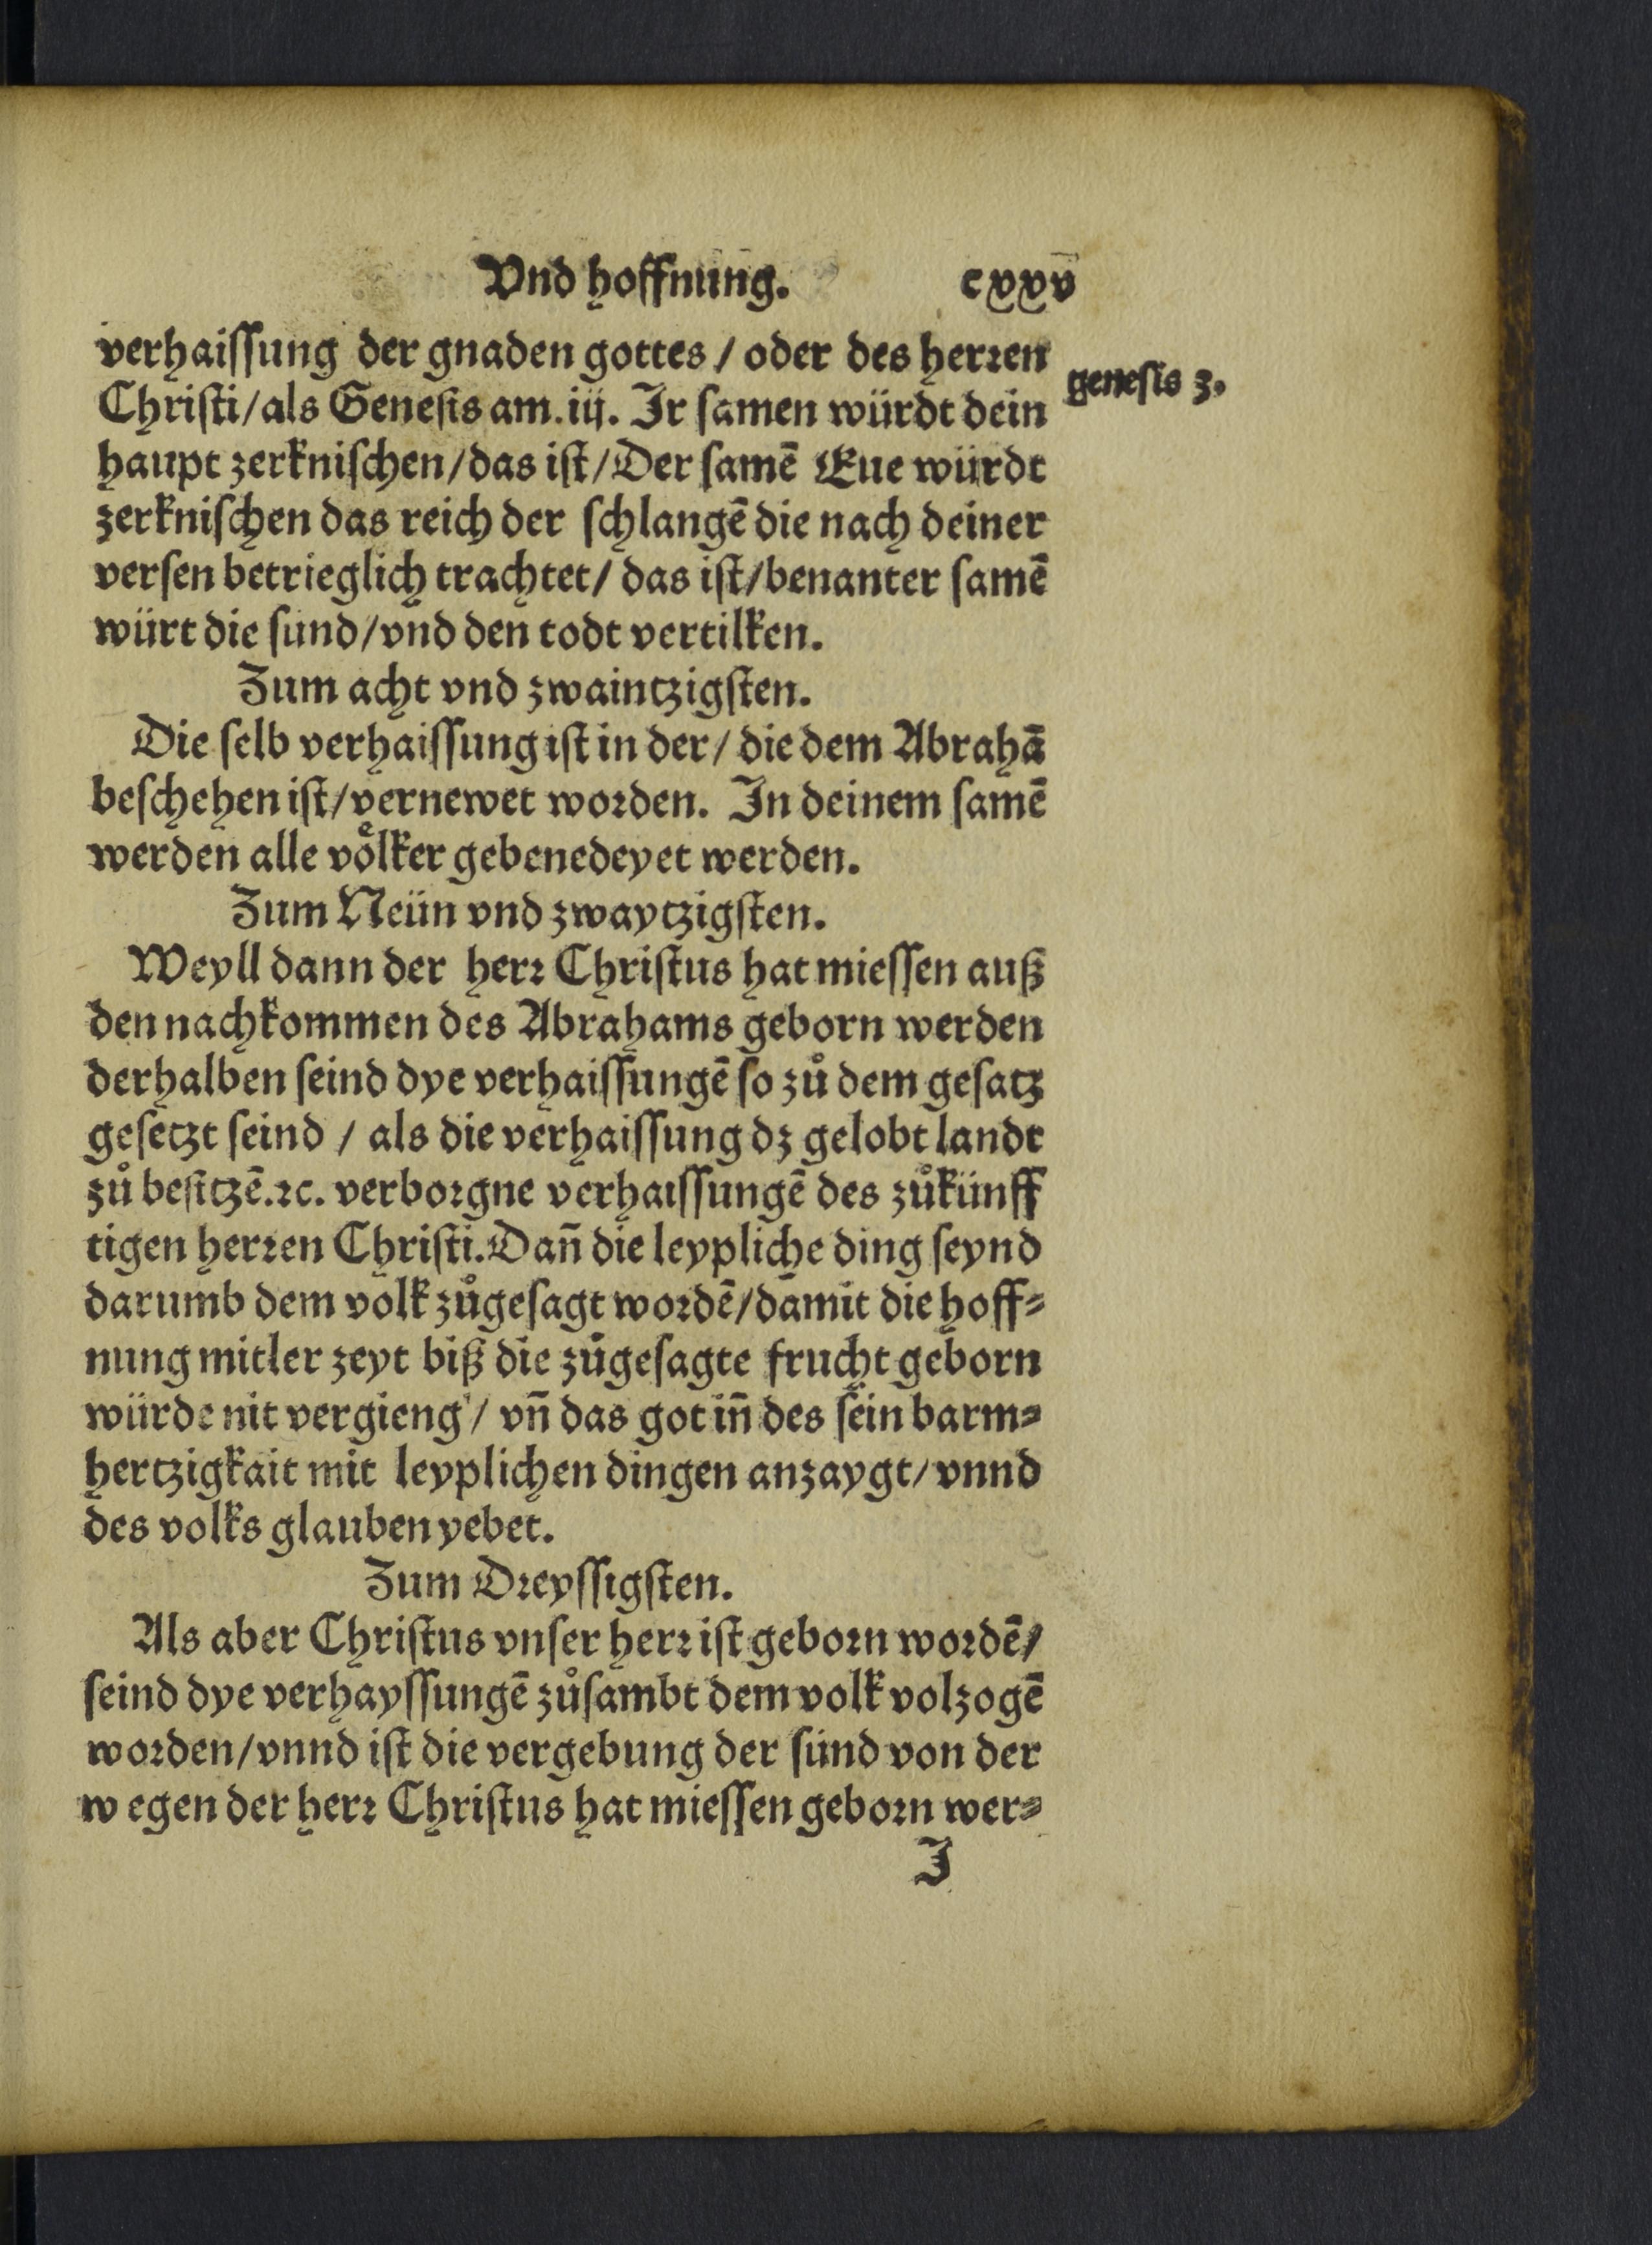 Vnd hoffnung. cxxv
verhaiſſung der gnaden gottes / oder des herꝛen
genesis 3.
Chriſti/als Geneſis am.iij. Ir ſamen würdt dein
haupt zerkniſchen/das iſt/Der ſamē Eue würdt
zerkniſchen das reich der ſchlangē die nach deiner
verſen betrieglich trachtet/ das iſt/benanter ſamē
würt die ſünd/vnd den todt vertilken.
Zum acht vnd zwaintzigſten.
Die ſelb verhaiſſung iſt in der/ die dem Abrahā
beſchehen iſt/vernewet woꝛden. In deinem ſamē
werden alle voͤlker gebenedeyet werden.
Zum Neün vnd zwaytzigſten.
Weyll dann der herꝛ Chriſtus hat mieſſen auß
den nachkommen des Abrahams geborn werden
derhalben ſeind dye verhaiſſungē ſo zů dem geſatz
geſetzt ſeind / als die verhaiſſung dz gelobt landt
zů beſitzē.ꝛc. verboꝛgne verhaiſſungē des zůkünff
tigen herꝛen Chriſti.Dañ die leypliche ding ſeynd
darumb dem volk zůgeſagt woꝛdē/damit die hoff⸗
nung mitler zeyt biß die zůgeſagte frucht geborn
würde nit vergieng'/ vñ das got iñ des ſein barm⸗
hertzigkait mit leyplichen dingen anzaygt/vnnd
des volks glauben yebet.
Zum Dꝛeyſſigſten.
Als aber Chriſtus vnſer herꝛ iſt geboꝛn woꝛdē/
ſeind dye verhayſſungē zůſambt dem volk volzogē
woꝛden/vnnd iſt die vergebung der ſünd von der
w egen der herꝛ Chriſtus hat mieſſen geboꝛn wer⸗
J